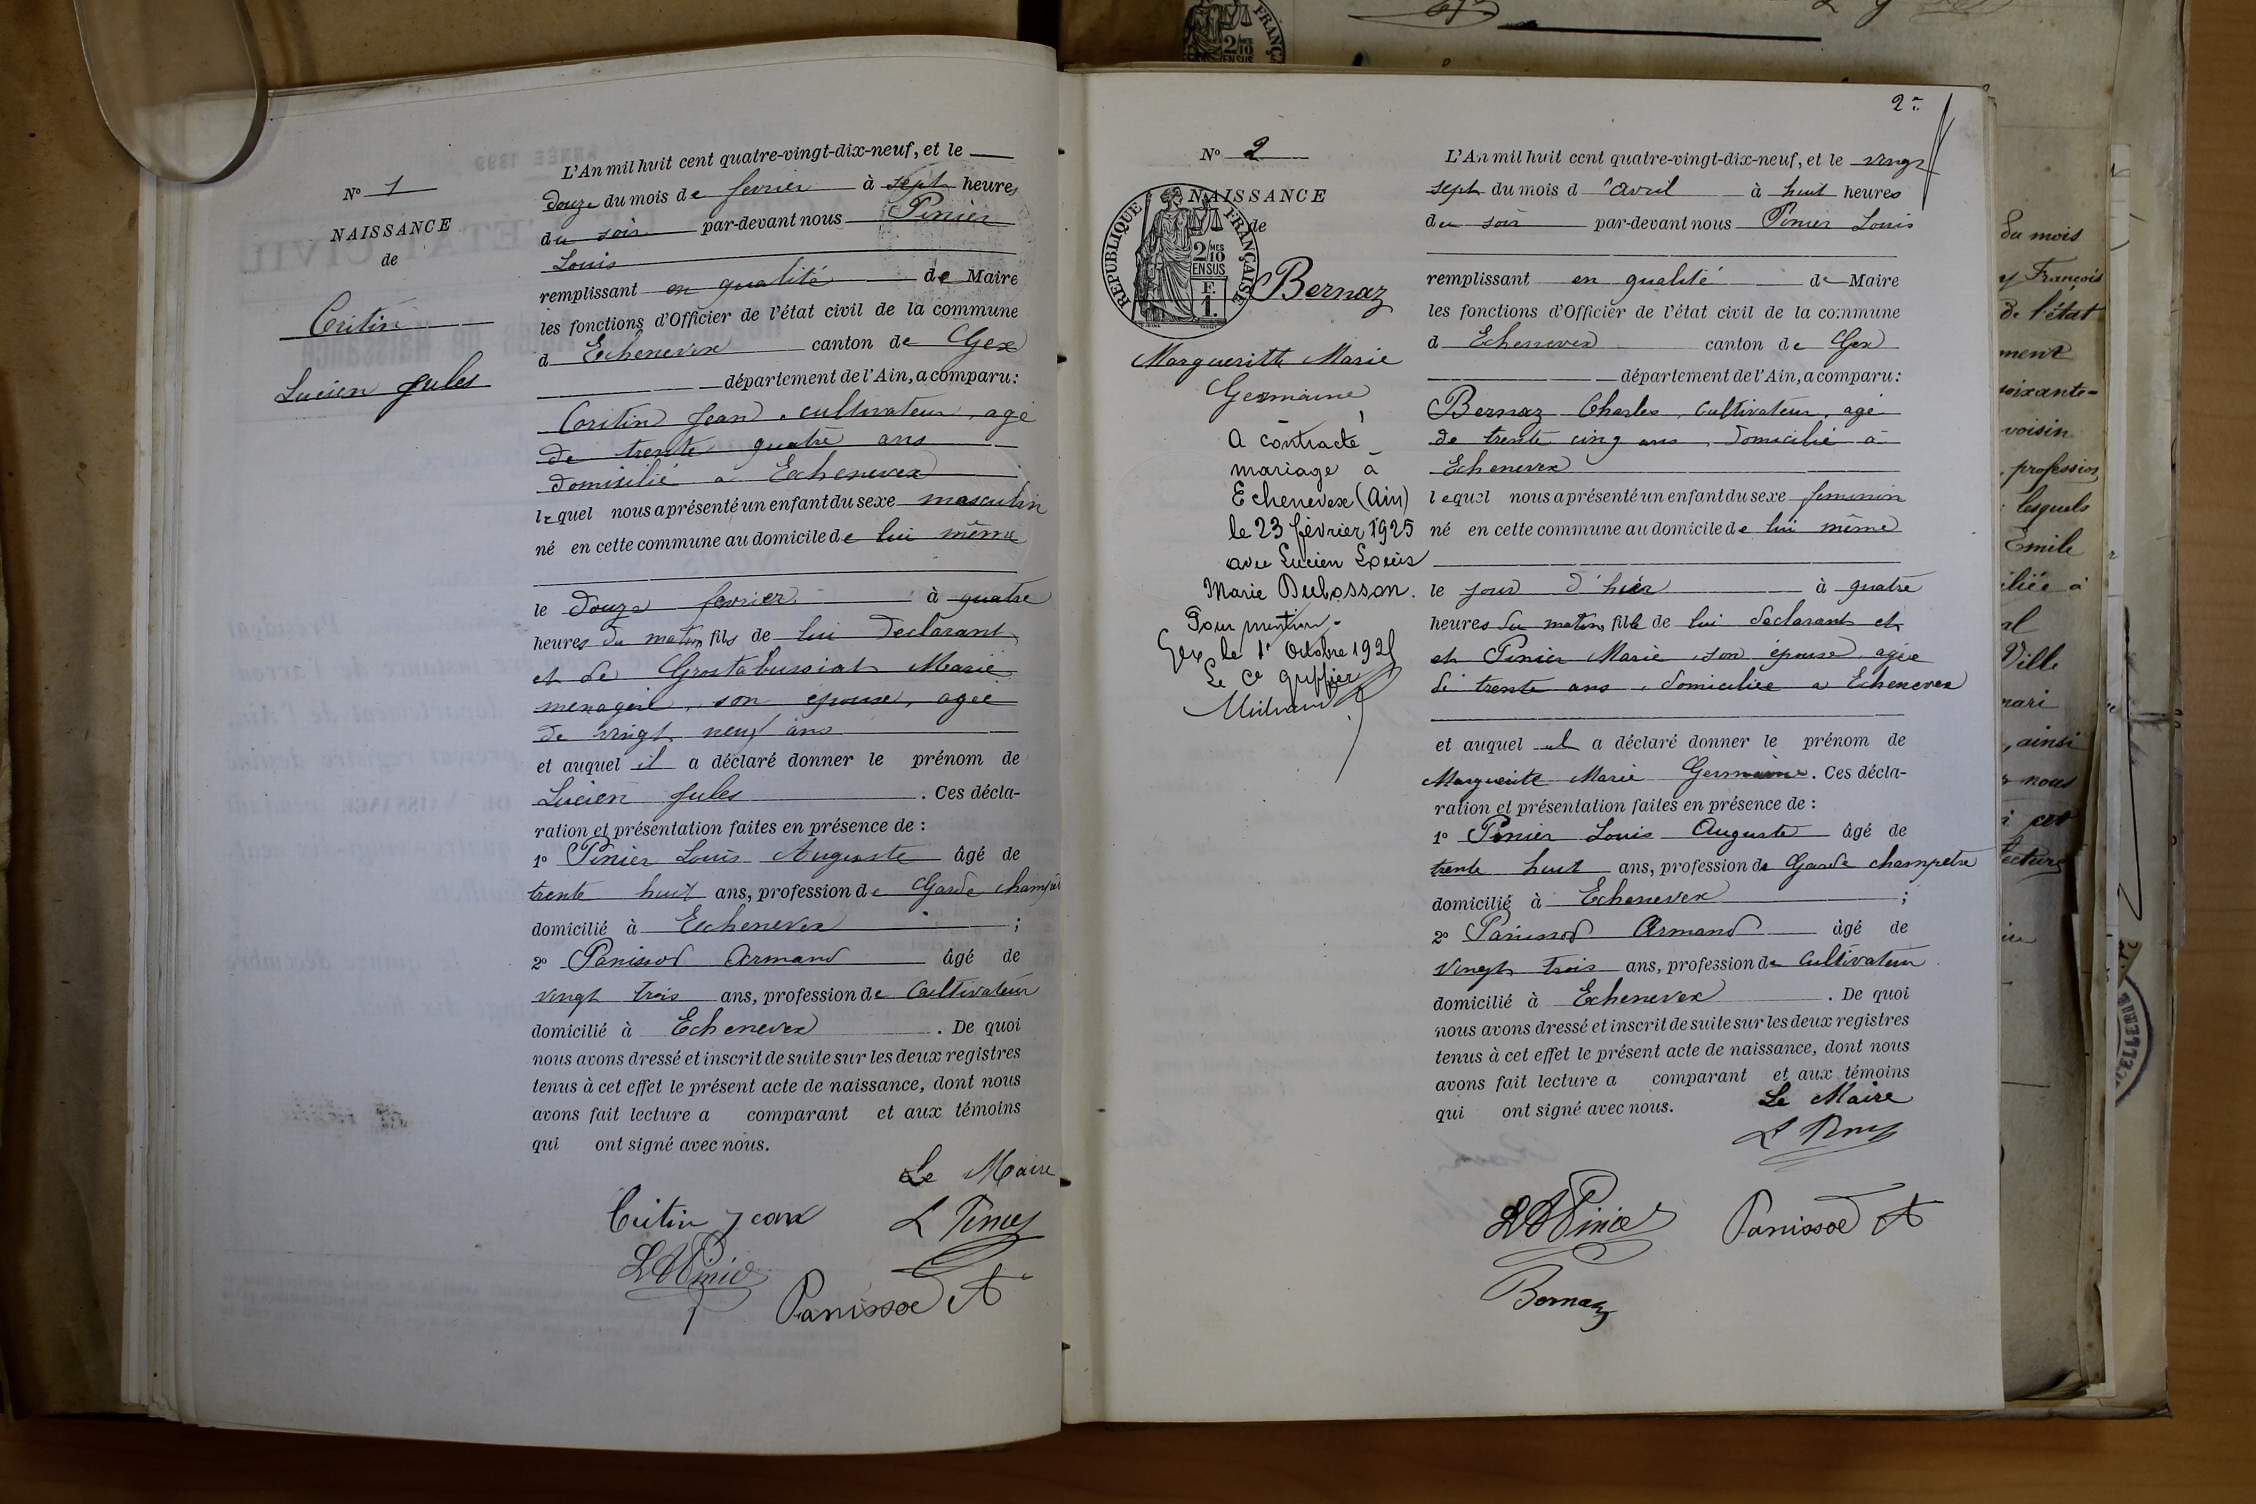 N° 1
NAISSANCE
de
Critin
Lucien Jules
L'An mil huit cent quatre-vingt-dix-neuf, et le
douze du mois de fevrier à sept heures
du soir par-devant nous Pinier
Louis
remplissant en qualité de Maire
les fonctions d'Officier de l'état civil de la commune
d Echenevex canton de Gex
département de l'Ain, a comparu:
Critin Jean, cultivateur, agé
de trente quatre ans
domicilié a Echenevex
lequel nous a présenté un enfant du sexe masculin
né en cette commune au domicile de lui même
le douze fevrier à quatre
heures du matin fils de lui déclarant
et de Marie
menagère, son épouse, agée
de vingt neuf ans
et auquel il a déclaré donner le prénom de
Lucien Jules. Ces décla-
ration et présentation faites en présence de :
1° Pinier Louis Auguste âgé de
trente huit ans, profession de Garde champêt
domicilié à Echenevex ;
2° Panissod Armand âgé de
vingt trois ans, profession de Cultivateur
domicilié à Echenevex. De quoi
nous avons dressé et inscrit de suite sur les deux registres
tenus à cet effet le présent acte de naissance, dont nous
avons fait lecture a comparant et aux témoins
qui ont signé avec nous.
Le Maire
Critin Jean L Pinier
L A Pinier
Panissod A
2
N° 2
NAISSANCE
de
RÉPUBLIQUE FRANÇAISE
2 MES
10
EN SUS
F.
1.
Bernaz
Margueritte Marie
Germaine
a contracté
mariage à
Echenevex (Ain)
le 23 février 1925
avec Lucien Louis
Marie Dubosson.
Pour mention.
Gex, le 1r Octobre 192
Le Ce greffier
L'An mil huit cent quatre-vingt-dix-neuf, et le vingt
sept du mois d'avril à huit heures
du soir par-devant nous Pinier Louis
remplissant en qualité de Maire
les fonctions d'Officier de l'état civil de la commune
d Echenevex canton de Gex
département de l'Ain, a comparu:
Bernaz Charles, cultivateur, agé
de trente cinq ans, domicilié à
Echenevex
lequel nous a présenté un enfant du sexe feminin
né en cette commune au domicile de lui même
le jour d'hier à quatre
heures du matin fille de lui déclarant et
et Pinier Marie, son épouse, agée
de trente ans, domiciliée a Echenevex
et auquel il a déclaré donner le prénom de
Marguerite Marie Germaine. Ces décla-
ration et présentation faites en présence de :
1° Pinier Louis Auguste âgé de
trente huit ans, profession de Garde champetre
domicilié à Echenevex ;
2° Panissod Armand âgé de
vingt trois ans, profession de Cultivateur
domicilié à Echenevex. De quoi
nous avons dressé et inscrit de suite sur les deux registres
tenus à cet effet le présent acte de naissance, dont nous
avons fait lecture a comparant et aux témoins
qui ont signé avec nous. Le Maire
L Pinier
L A Pinier Panissod A
Bernaz
du mois
François
de l'état
ment
soixante-
voisin
, profession
: lesquels
Emile
iliée à
al
Ville
mari
, ainsi
nous
cet
lecture